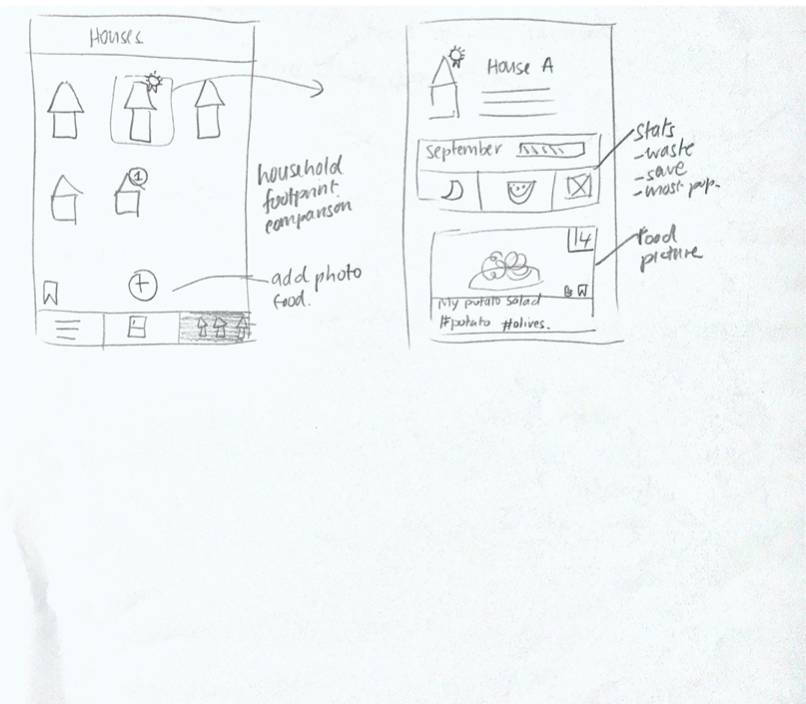 Houses
1
household
footprint
comparison
add photo
food.
House A
September
stats
-waste
-save
-most pop.
14
food
picture
My potato salad
#potato #olives.